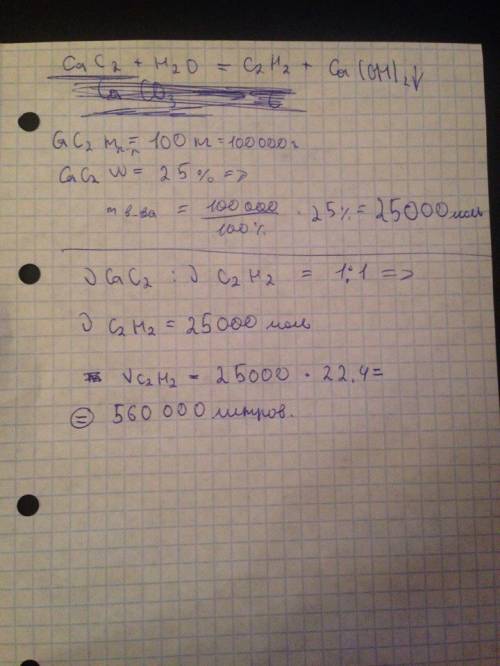 CaC2 + H2O = C2H2 + Ca(OH)2↓
CaCO3
CaC2 m = 100 кг = 100000 г
CaC2 W = 25% =>
m в-ва = 100 000 / 100% · 25% = 25000 моль
ν CaC2 : ν C2H2 = 1:1 =>
ν C2H2 = 25000 моль
V C2H2 = 25000 · 22,4 =
= 560 000 литров.